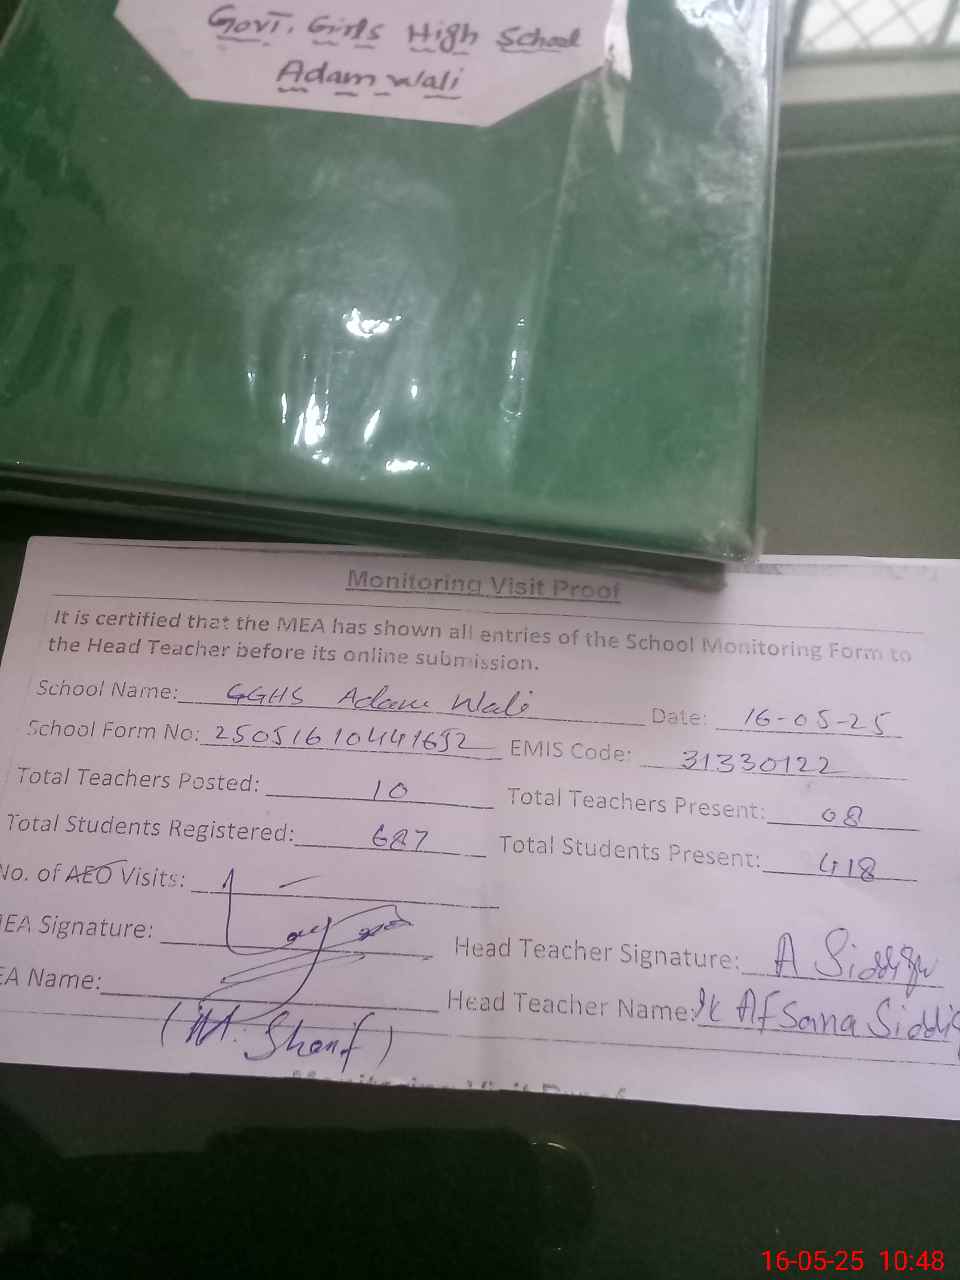 Govt. Girls High School
Adam Wali
Monitoring Visit Proof
It is certified that the MEA has shown all entries of the School Monitoring Form to
the Head Teacher before its online submission.
School Name: GGHS Adam Wali Date: 16-05-25
School Form No: 25051610441652 EMIS Code: 31330122
Total Teachers Posted: 10 Total Teachers Present: 08
Total Students Registered: 687 Total Students Present: 418
No. of AEO Visits:
EA Signature: Head Teacher Signature: A Siddiqu
EA Name: Head Teacher Name: Afsana Siddiq
(M. Sharif)
Monitoring Visit Proof
16-05-25 10:48